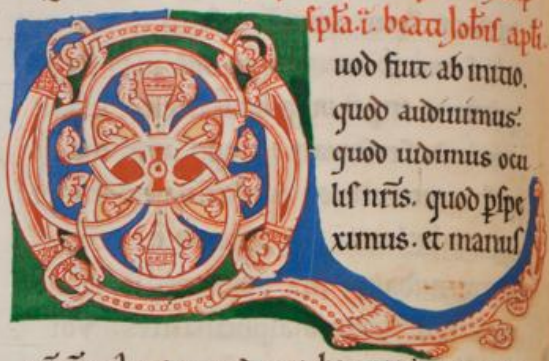 spła.ı̄. beati Joħis apłi.
Quod fuit ab initio.
quod audiuimus:
quod uidimus ocu
lis nr̄is. quod ꝑspe
ximus. et manus